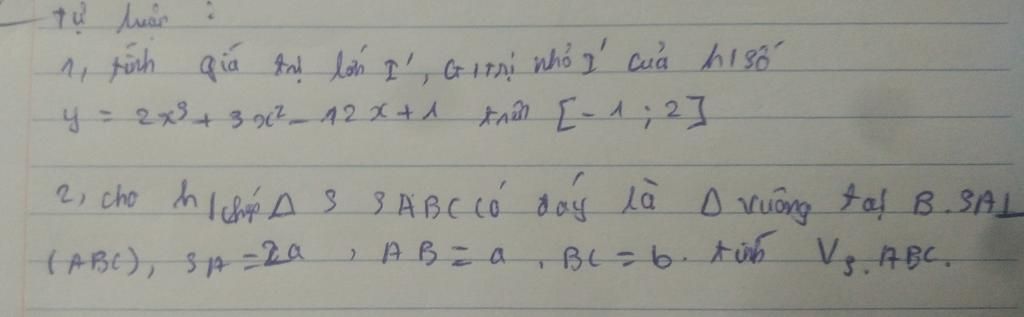 Tự luận :
1, tính giá trị lớn I', G/trị nhỏ I' của h/số
y = 2x³ + 3x² - 12x + 1 trên [-1 ; 2]
2, cho h/chóp Δ S SABC có đáy là Δ vuông tại B. SA⊥
(ABC), SA = 2a, AB = a, BC = b. tính V S.ABC.